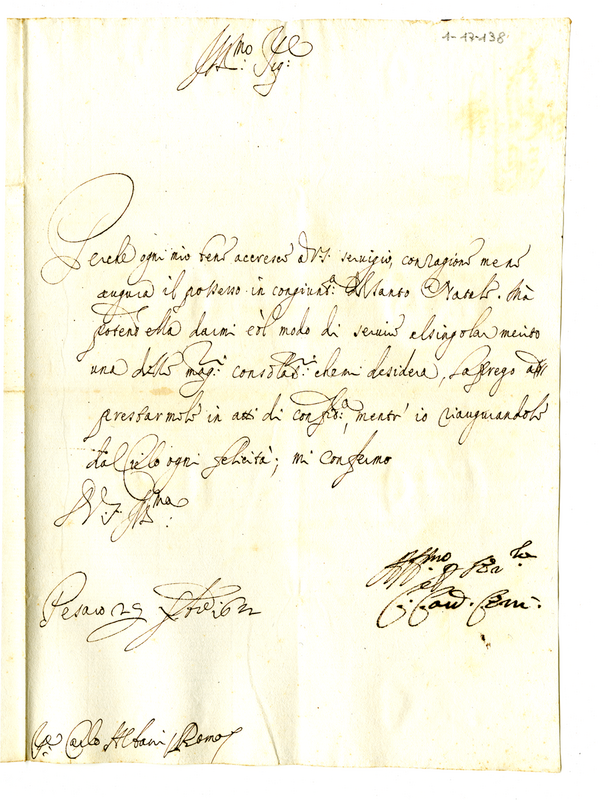 1-17-138
Ill.mo Sig.re
Perche ogni mio bene accresce a V.S. servigio, con ragione mene
augura il possesso in congiunt.a del santo Natale. Mà
potend' ella darmi col modo di servire al singolar merito
una delle mag.ri consolat.ni che mi desidera, la prego à
prestarmele in atti di confid.a, mentr' io riaugurandole
dal Cielo ogni felicità; mi confermo
D. V. S. Ill.ma
Pesaro 29
Aff.mo per ser.le
C. Card. Cerri.
S.r Carlo Albani Roma